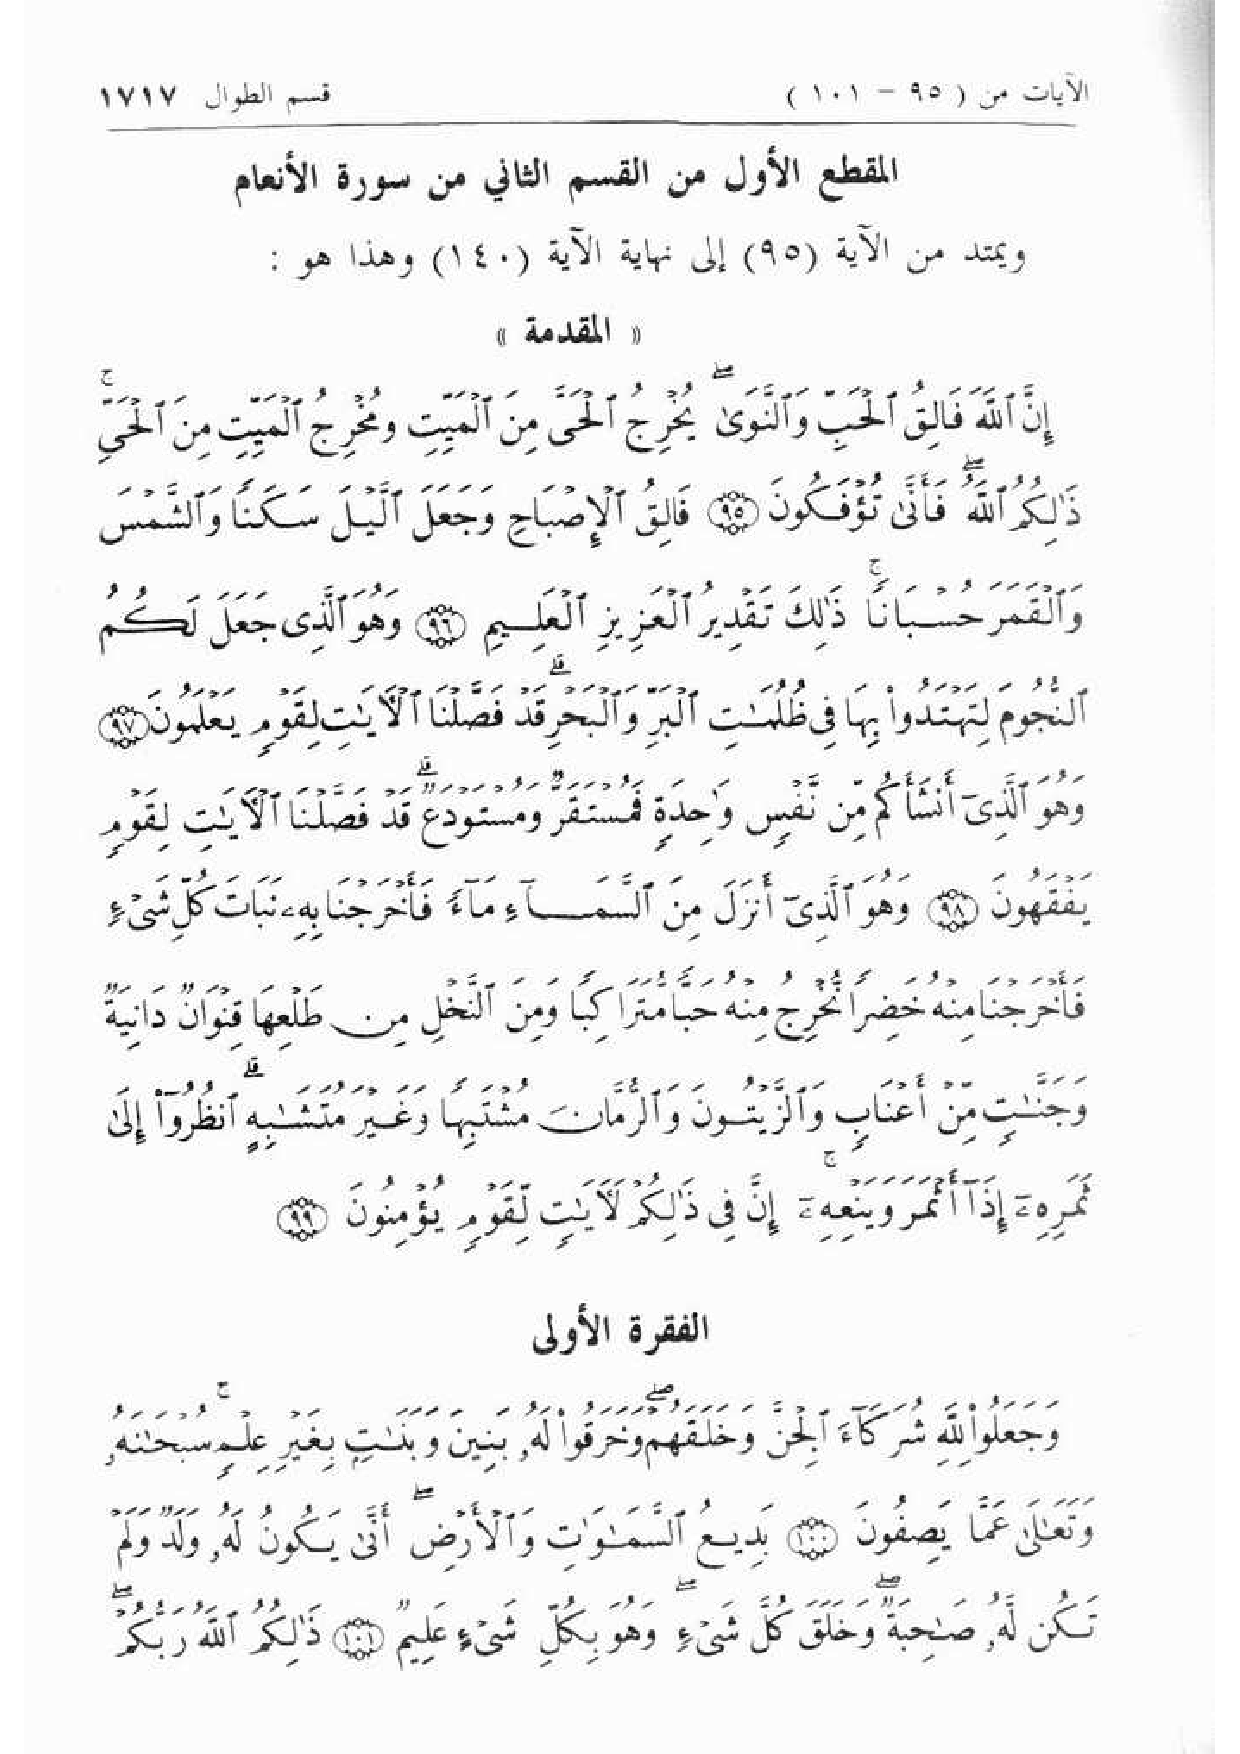 الآيات من ( ٩٥ - ١٠١ ) قسم الطوال ١٧١٧
المقطع الأول من القسم الثاني من سورة الأنعام
ويمتد من الآية (٩٥) إلى نهاية الآية (١٤٠) وهذا هو :
« المقدمة »
إِنَّ ٱللَّهَ فَالِقُ ٱلْحَبِّ وَٱلنَّوَىٰ ۖ يُخْرِجُ ٱلْحَىَّ مِنَ ٱلْمَيِّتِ وَمُخْرِجُ ٱلْمَيِّتِ مِنَ ٱلْحَىِّ ۚ
ذَٰلِكُمُ ٱللَّهُ ۖ فَأَنَّىٰ تُؤْفَكُونَ ٩٥ فَالِقُ ٱلْإِصْبَاحِ وَجَعَلَ ٱلَّيْلَ سَكَنًا وَٱلشَّمْسَ
وَٱلْقَمَرَ حُسْبَانًا ۚ ذَٰلِكَ تَقْدِيرُ ٱلْعَزِيزِ ٱلْعَلِيمِ ٩٦ وَهُوَ ٱلَّذِى جَعَلَ لَكُمُ
ٱلنُّجُومَ لِتَهْتَدُوا۟ بِهَا فِى ظُلُمَـٰتِ ٱلْبَرِّ وَٱلْبَحْرِ ۗ قَدْ فَصَّلْنَا ٱلْـَٔايَـٰتِ لِقَوْمٍ يَعْلَمُونَ ٩٧
وَهُوَ ٱلَّذِىٓ أَنشَأَكُم مِّن نَّفْسٍ وَٰحِدَةٍ فَمُسْتَقَرٌّ وَمُسْتَوْدَعٌ ۗ قَدْ فَصَّلْنَا ٱلْـَٔايَـٰتِ لِقَوْمٍ
يَفْقَهُونَ ٩٨ وَهُوَ ٱلَّذِىٓ أَنزَلَ مِنَ ٱلسَّمَآءِ مَآءً فَأَخْرَجْنَا بِهِۦ نَبَاتَ كُلِّ شَىْءٍ
فَأَخْرَجْنَا مِنْهُ خَضِرًا نُّخْرِجُ مِنْهُ حَبًّا مُّتَرَاكِبًا وَمِنَ ٱلنَّخْلِ مِن طَلْعِهَا قِنْوَانٌ دَانِيَةٌ
وَجَنَّـٰتٍ مِّنْ أَعْنَابٍ وَٱلزَّيْتُونَ وَٱلرُّمَّانَ مُشْتَبِهًا وَغَيْرَ مُتَشَـٰبِهٍ ۗ ٱنظُرُوٓا۟ إِلَىٰ
ثَمَرِهِۦٓ إِذَآ أَثْمَرَ وَيَنْعِهِۦٓ ۚ إِنَّ فِى ذَٰلِكُمْ لَـَٔايَـٰتٍ لِّقَوْمٍ يُؤْمِنُونَ ٩٩
الفقرة الأولى
وَجَعَلُوا۟ لِلَّهِ شُرَكَآءَ ٱلْجِنَّ وَخَلَقَهُمْ ۖ وَخَرَقُوا۟ لَهُۥ بَنِينَ وَبَنَـٰتٍۭ بِغَيْرِ عِلْمٍ ۚ سُبْحَـٰنَهُۥ
وَتَعَـٰلَىٰ عَمَّا يَصِفُونَ ١٠٠ بَدِيعُ ٱلسَّمَـٰوَٰتِ وَٱلْأَرْضِ ۖ أَنَّىٰ يَكُونُ لَهُۥ وَلَدٌ وَلَمْ
تَكُن لَّهُۥ صَـٰحِبَةٌ ۖ وَخَلَقَ كُلَّ شَىْءٍ ۖ وَهُوَ بِكُلِّ شَىْءٍ عَلِيمٌ ١٠١ ذَٰلِكُمُ ٱللَّهُ رَبُّكُمْ ۖ